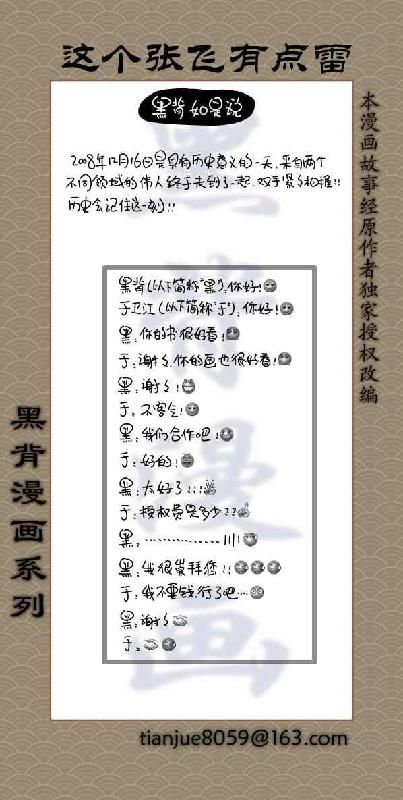 这个张飞有点雷
黑背如是说
2008年12月16日是具有历史意义的一天.来自两个
不同领域的伟人终于走到了一起.双手紧紧相握!!
历史会记住这一刻!!
本漫画故事经原作者独家授权改编
黑背(以下简称"黑"):你好!
于卫江(以下简称"于"):你好!
黑:你的书很好看!
于:谢谢.你的画也很好看!
黑:谢谢!
于:不客气!
黑:我们合作吧!
于:好的!
黑:太好了!!!
于:授权费是多少??
黑:……………
黑:我很崇拜您!!
于:我不要钱.行了吧…
黑:谢谢
于:
黑背漫画系列
黑背漫画
tianjue8059@163.com